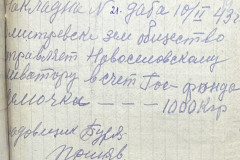 Накладна N 21. дата 10/II 43 г
митревске зем общество
правляет Новоселовскому
еватору в счет Гос-фонда
семочки — — — 1000 кгр
одовщик Буря